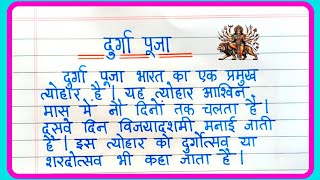 दुर्गा पूजा
दुर्गा पूजा भारत का एक प्रमुख
त्योहार है | यह त्योहार आश्विन
मास में नौ दिनों तक चलता है |
दसवे दिन विजयादशमी मनाई जाती
है | इस त्योहार को दुर्गोत्सव या
शरदोत्सव भी कहा जाता है |